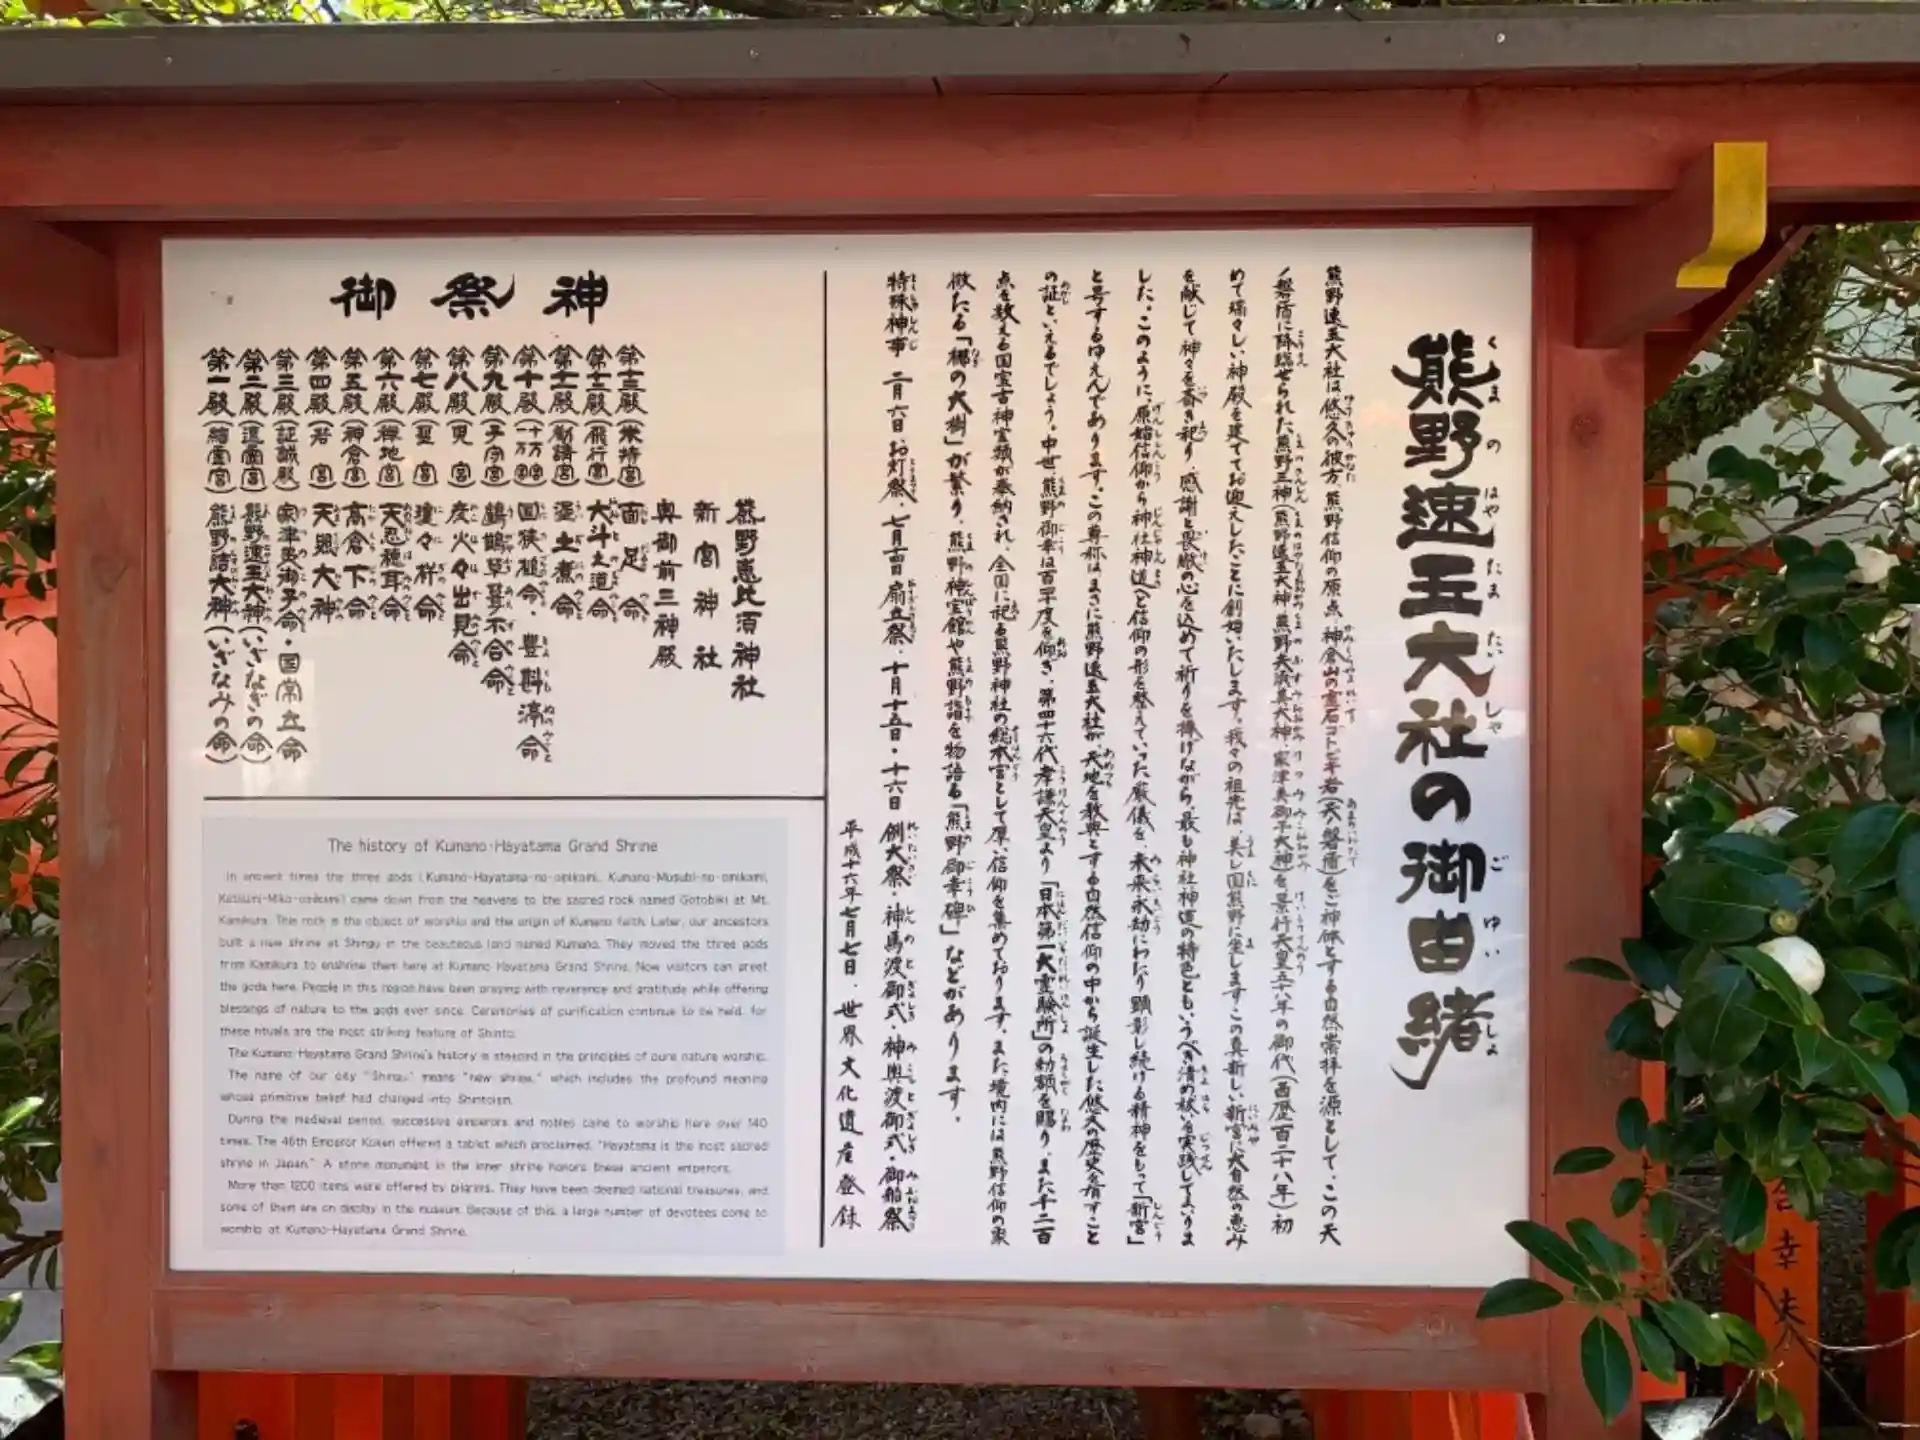 熊野速玉大社の御由緒
熊野速玉大社は悠久の彼方、熊野信仰の原点、神倉山の霊石ゴトビキ岩(天ノ磐盾)をご神体とする自然崇拝を源として、この天
ノ磐盾に降臨せられた熊野三神(熊野速玉大神・熊野夫須美大神・家津美御子大神)を景行天皇五十八年の御代(西歴百二十八年)初
めて瑞々しい神殿を建ててお迎えしたことに創始いたします。我々の祖先は、美し国熊野に坐します、この真新しい新宮に大自然の恵み
を献じて神々を斎き祀り、感謝と畏敬の心を込めて祈りを捧げながら、最も神社神道の特色ともいうべき清め祓を実践してまいりま
した。このように、原始信仰から神社神道へと信仰の形を整えていった厳儀を、未来永劫にわたり顕彰し続ける精神をもって「新宮」
と号するゆえんであります。この尊称はまさに熊野速玉大社が、天地を教典とする自然信仰の中から誕生した悠久の歴史を有すこと
の証といえるでしょう。中世、熊野御幸は百四十度を仰ぎ、第四十六代孝謙天皇より「日本第一大霊験所」の勅額を賜り、また千二百
点を数える国宝古神宝類が奉納され、全国に祀る熊野神社の総本宮として厚い信仰を集めております。また境内には熊野信仰の象
徴たる「梛の大樹」が繁り、熊野神宝館や熊野詣を物語る「熊野御幸碑」などがあります。
特殊神事 二月六日 お灯祭、七月十四日 扇立祭、十月十五日・十六日 例大祭・神馬渡御式・神輿渡御式・御船祭
平成十六年七月七日、世界文化遺産登録
御祭神
熊野恵比須神社
新宮神社
奥御前三神殿
第十三殿(米持宮) 面足命
第十二殿(飛行宮) 大斗之道命
第十一殿(勧請宮) 泥土煮命
第十殿(十万宮) 国狭槌命・豊斟渟命
第九殿(子守宮) 鵜鶿草葺不合命
第八殿(児宮) 彦火々出見命
第七殿(聖宮) 瓊々杵命
第六殿(禅地宮) 天忍穂耳命
第五殿(神倉宮) 高倉下命
第四殿(若宮) 天照大神
第三殿(証誠殿) 家津美御子命・国常立命
第二殿(速玉宮) 熊野速玉大神(いざなぎの命)
第一殿(結霊宮) 熊野結大神(いざなみの命)
The history of Kumano-Hayatama Grand Shrine
In ancient times the three gods (Kumano-Hayatama-no-omikami, Kumano-Musubi-no-omikami,
Ketsumi-Miko-omikami) came down from the heavens to the sacred rock named Gotobiki at Mt.
Kamikura. This rock is the object of worship and the origin of Kumano faith. Later, our ancestors
built a new shrine at Shingu in the beauteous land named Kumano. They moved the three gods
from Kamikura to enshrine them here at Kumano Hayatama Grand Shrine. Now visitors can greet
the gods here. People in this region have been praying with reverence and gratitude while offering
blessings of nature to the gods ever since. Ceremonies of purification continue to be held, for
these rituals are the most striking feature of Shinto.
The Kumano-Hayatama Grand Shrine's history is steeped in the principles of pure nature worship.
The name of our city "Shingu" means "new shrine," which includes the profound meaning
whose primitive belief had changed into Shintoism.
During the medieval period, successive emperors and nobles came to worship here over 140
times. The 46th Emperor Koken offered a tablet which proclaimed, "Hayatama is the most sacred
shrine in Japan." A stone monument in the inner shrine honors these ancient emperors.
More than 1200 items were offered by pilgrims. They have been deemed national treasures, and
some of them are on display in the museum. Because of this, a large number of devotees come to
worship at Kumano-Hayatama Grand Shrine.